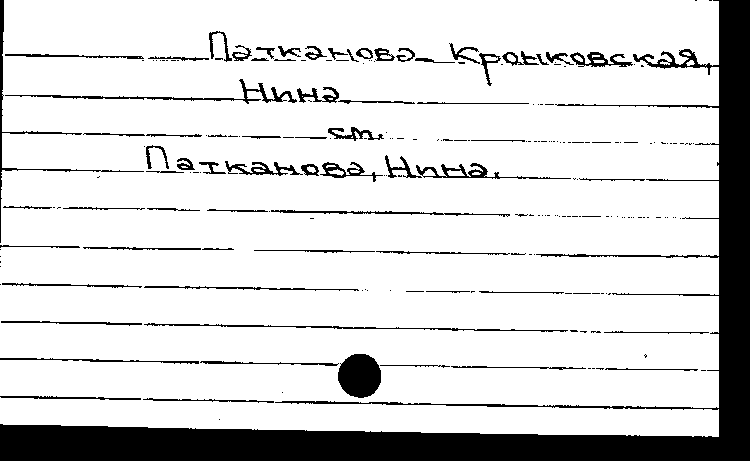 Патканова-Кронковская,
Нина
см.
Патканова, Нина.